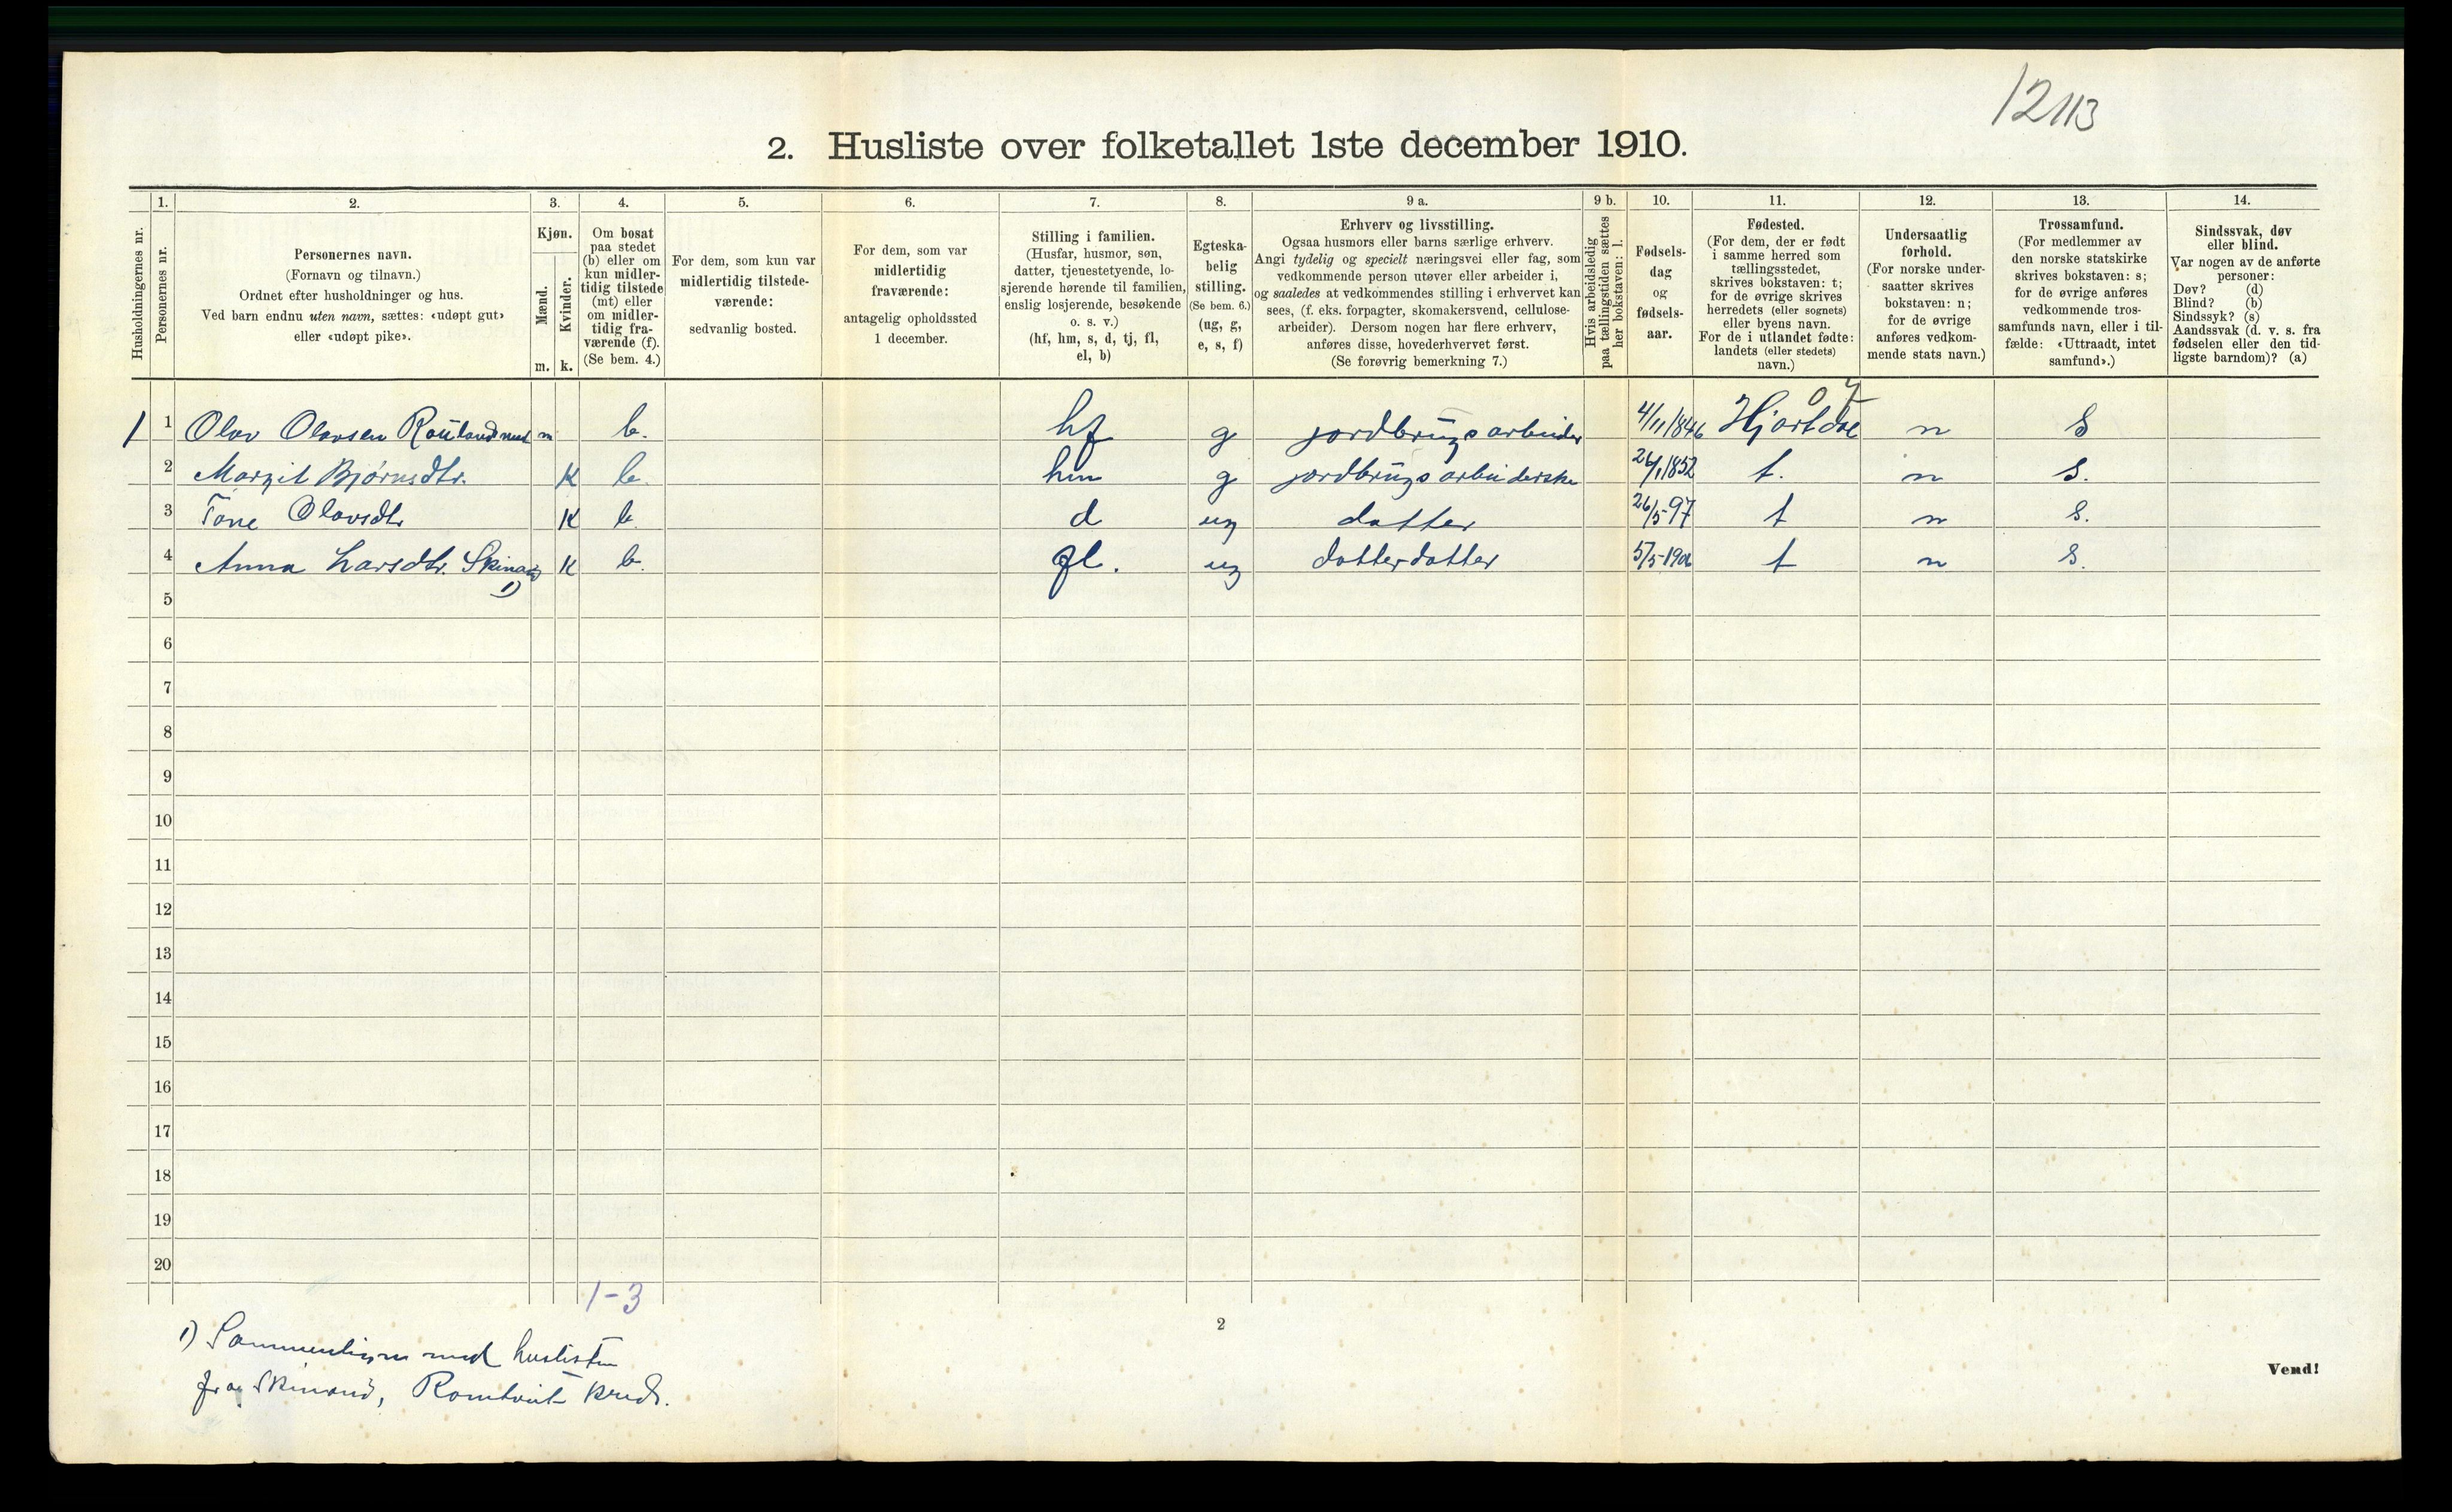 12113
2. Husliste over folketallet 1ste december 1910.
Husholdningernes nr.
1.
Personernes nr.
2.
Personernes navn.
(Fornavn og tilnavn.)
Ordnet efter husholdninger og hus.
Ved barn endnu uten navn, sættes: «udøpt gut»
eller «udøpt pike».
3.
Kjøn.
Mænd.
Kvinder.
m. k.
4.
Om bosat
paa stedet
(b) eller om
kun midler-
tidig tilstede
(mt) eller
om midler-
tidig fra-
værende (f).
(Se bem. 4.)
5.
For dem, som kun var
midlertidig tilstede-
værende:
sedvanlig bosted.
6.
For dem, som var
midlertidig
fraværende:
antagelig opholdssted
1 december.
7.
Stilling i familien.
(Husfar, husmor, søn,
datter, tjenestetyende, lo-
sjerende hørende til familien,
enslig losjerende, besøkende
o. s. v.)
(hf, hm, s, d, tj, fl,
el, b)
8.
Egteska-
belig
stilling.
(Se bem. 6.)
(ug, g,
e, s, f)
9 a.
Erhverv og livsstilling.
Ogsaa husmors eller barns særlige erhverv.
Angi tydelig og specielt næringsvei eller fag, som
vedkommende person utøver eller arbeider i,
og saaledes at vedkommendes stilling i erhvervet kan
sees, (f. eks. forpagter, skomakersvend, cellulose-
arbeider). Dersom nogen har flere erhverv,
anføres disse, hovederhvervet først.
(Se forøvrig bemerkning 7.)
9 b.
Hvis arbeidsledig
paa tællingstiden sættes
her bokstaven: l.
10.
Fødsels-
dag
og
fødsels-
aar.
11.
Fødested.
(For dem, der er født
i samme herred som
tællingsstedet,
skrives bokstaven: t;
for de øvrige skrives
herredets (eller sognets)
eller byens navn.
For de i utlandet fødte:
landets (eller stedets)
navn.)
12.
Undersaatlig
forhold.
(For norske under-
saatter skrives
bokstaven: n;
for de øvrige
anføres vedkom-
mende stats navn.)
13.
Trossamfund.
(For medlemmer av
den norske statskirke
skrives bokstaven: s;
for de øvrige anføres
vedkommende tros-
samfunds navn, eller i til-
fælde: «Uttraadt, intet
samfund».)
14.
Sindssvak, døv
eller blind.
Var nogen av de anførte
personer:
Døv? (d)
Blind? (b)
Sindssyk? (s)
Aandssvak (d. v. s. fra
fødselen eller den tid-
ligste barndom)? (a)
1 1 Olav Olavsen m b. hf g jordbrugsarbeider 4/11 1846 Hjortdal n s
2 Margit Bjørnsdtr. K b. hm g jordbrugsarbeiderske 26/1 1852 t. n s.
3 Tone Olavsdtr K b. d ug datter 26/5-97 t n s.
4 Anna Larsdtr. Skinand 1) K b. fl. ug datterdatter 5/5-1906 t n s.
5
6
7
8
9
10
11
12
13
14
15
16
17
18
19
20
1-3
2
1) Sammenlign med huslisten
fra Skinand, Romtveit kreds.
Vend!